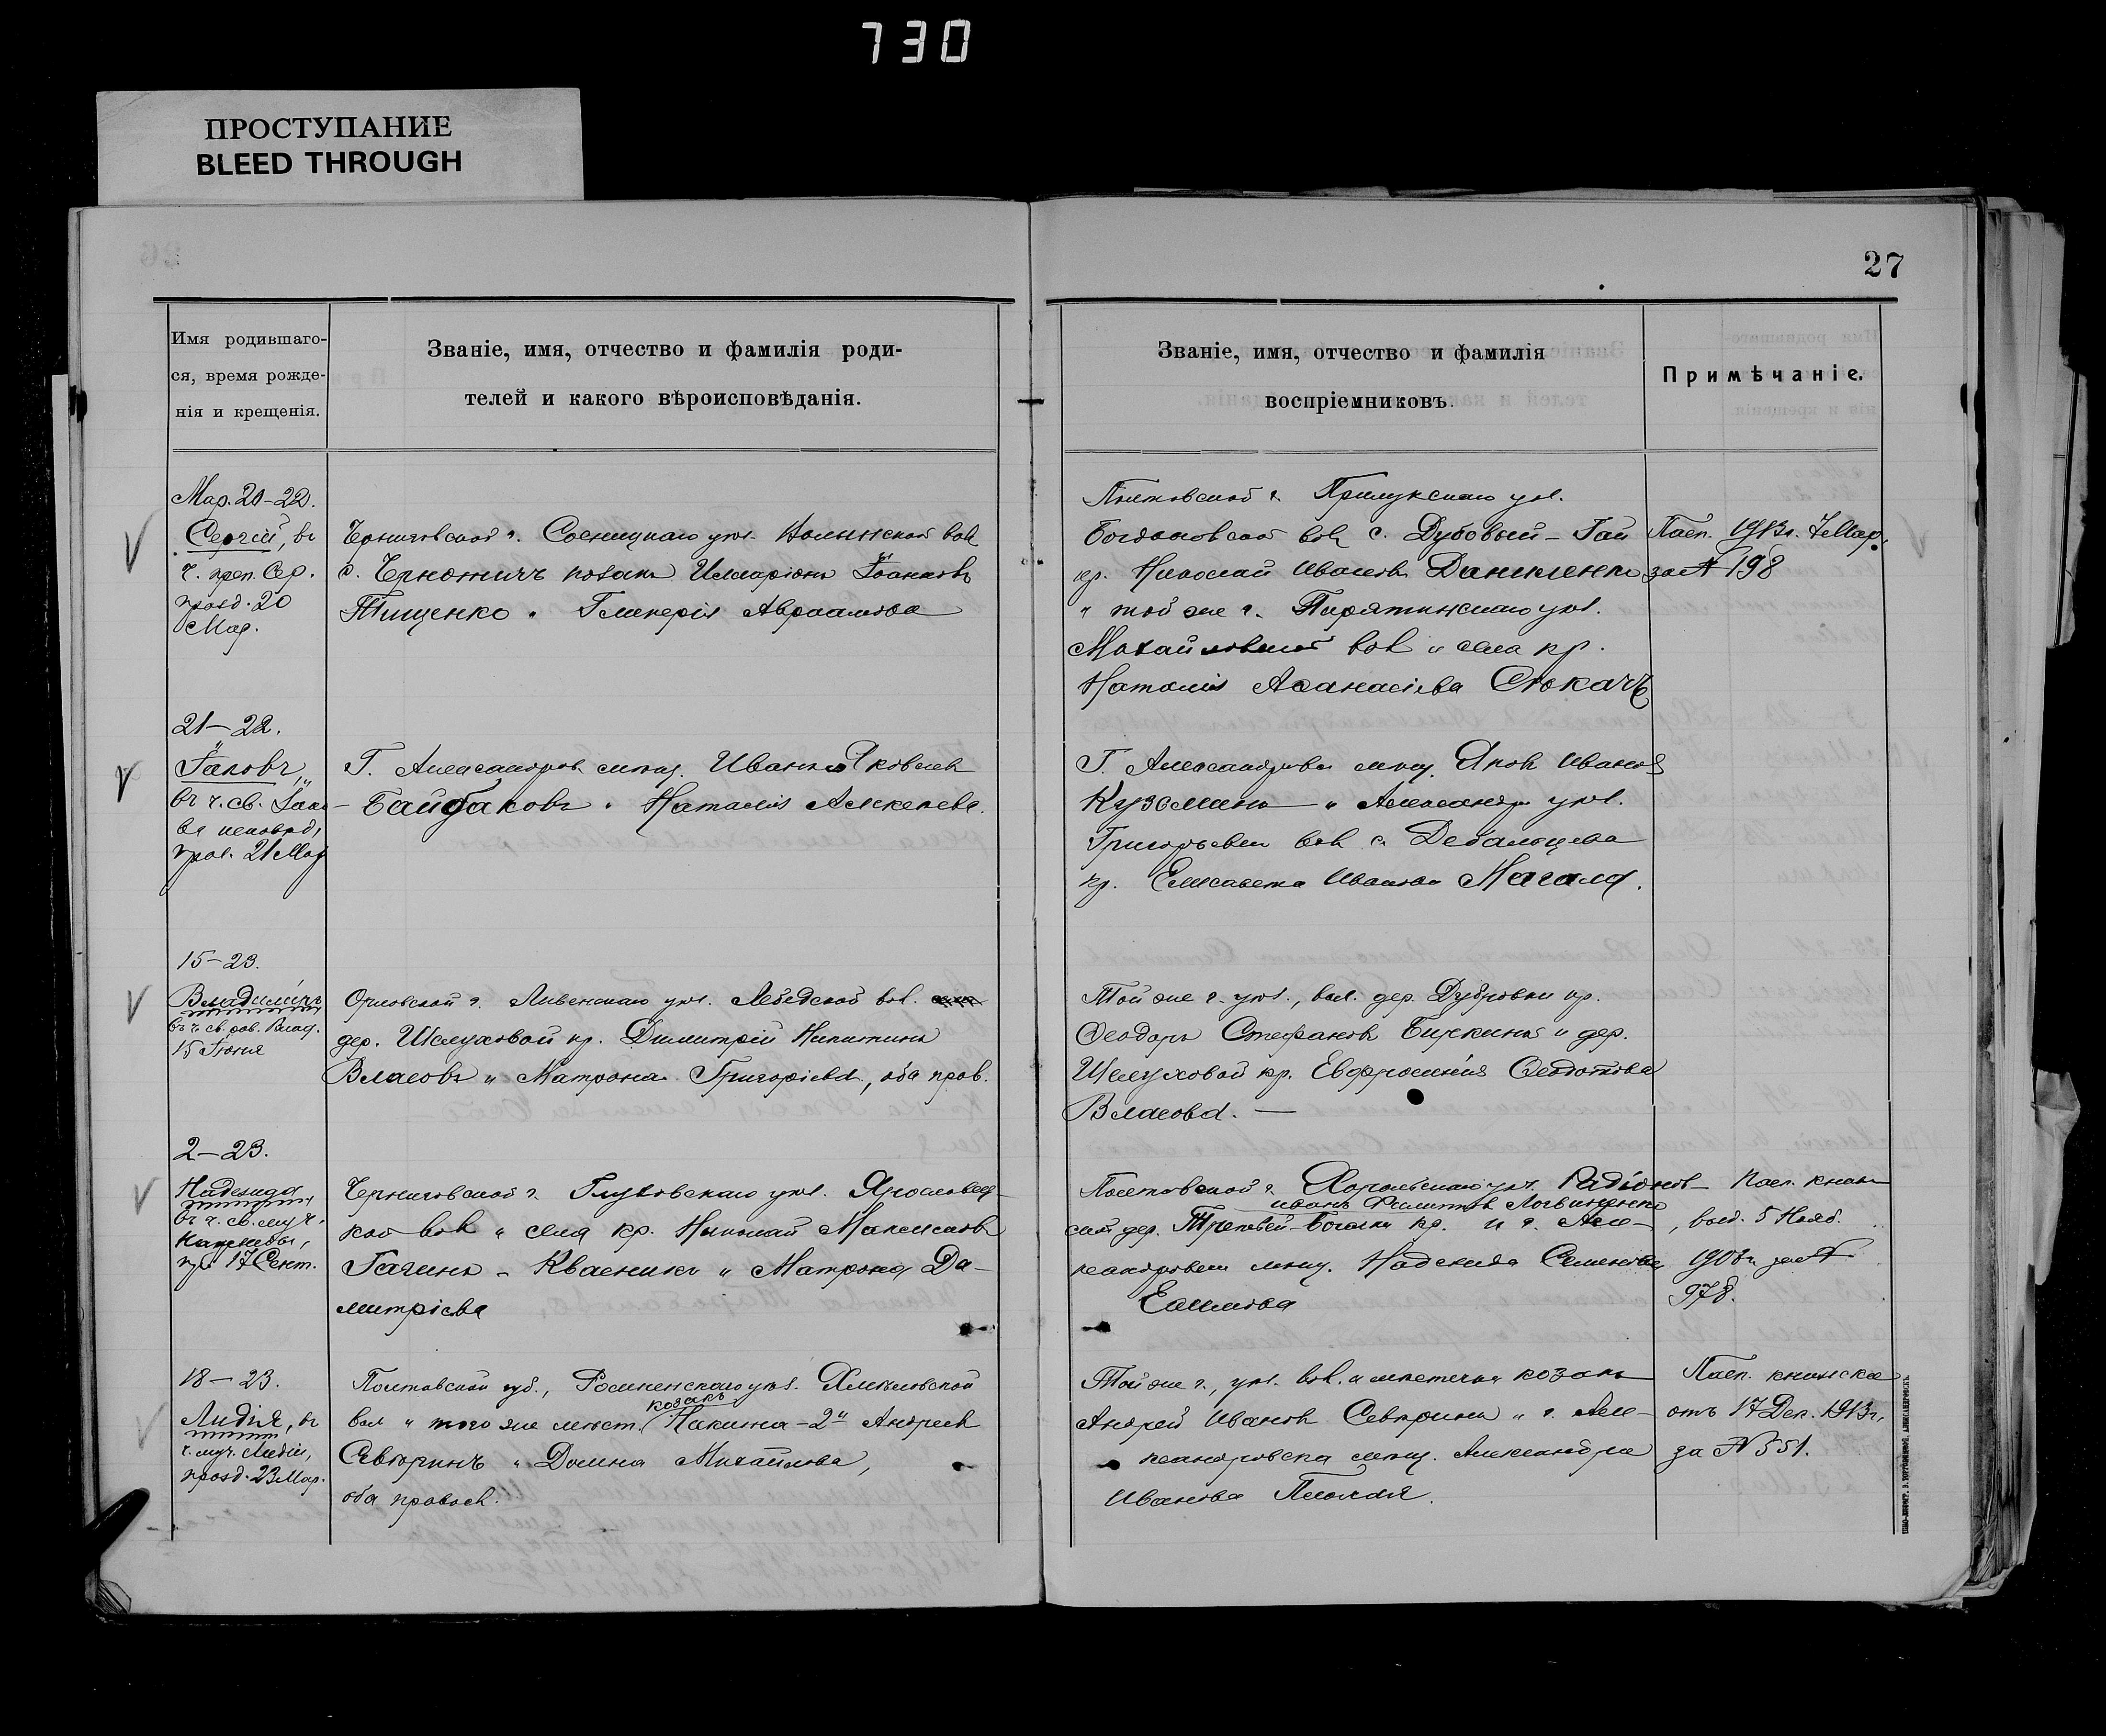 730
ПРОСТУПАНИЕ
BLEED THROUGH
27
Имя родившаго-
ся, время рожде-
нія и крещенія.
Званіе, имя, отчество и фамилія роди-
телей и какого вѣроисповѣданія.
Званіе, имя, отчество и фамилія
воспріемниковъ.
Примѣчаніе.
Мар. 20-22.
Сергій, въ
ч. преп. Сер.
празд. 20
Мар.
Черниговской г. Сосницкаго уѣз. вол.
с. козакъ Илларіонъ Іоанновъ
Тищенко и Гликерія Авраамова
Полтовской г. Прилукскаго уѣз.
Богдановской вол. с. Дубовый-Гай
кр. Николай Ивановъ Даниленко
и той же г. Пирятинскаго уѣз.
Михайловской вол. и села кр.
Наталія Аѳанасіева Сюкачъ
Пасп. 1913г. 7 Мар.
за № 198
21-22.
Іаковъ,
въ ч. св. Іако-
ва исповѣд.,
праз. 21 Мар
Г. Александров. мѣщ. Иванъ Яковлев
Байбаковъ и Наталія Алексеева.
Г. Александровска мѣщ. Яков Иванов
Кузьминъ и Александр. уѣз.
Григорьевск вол. с. Дебальцева
кр. Елисавета Иванова Магала.
15-23.
Владиміръ
въ ч. св. рав. Влад.
15 Іюня
Орловской г. Ливенскаго уѣз. Лебедской вол.
дер. Шелуховой кр. Димитрій Никитинъ
Власовъ и Матрона Григоріева, оба прав.
Той же г. уѣз., вол. дер. Дубровки кр.
Ѳеодоръ Стефановъ Бичкинъ и дер.
Шелуховой кр. Евфросинія Ѳеодотова
Власова. —
2-23.
Надежда,
въ ч. св. муч.
Надежды,
пр. 17 Сент.
Черниговской г. Глуховскаго уѣз. Ярославец-
кой вол. и села кр. Николай Максимовъ
Гагинъ - Квасникъ и Матрона Ди-
митріева
Полтавской г. Хорольскаго уѣз. Радіонов-
Иванъ Филиппов Логвиненко
ской дер. кр. и г. Але-
ксандровска мѣщ. Надежда Семенова
Ефимова
Пасп. книж
, выд. 5 Нояб.
1908г. за №
978.
18-23.
Лидія, въ
ч. муч. Лидіи,
празд. 23 Мар.
Полтавской губ., Роменскаго уѣз. Хмѣловской
козакъ
вол и того же мѣст. Іакинѳ-2й Андреев
Севринъ и Домна Михайлова,
оба правосл.
Той же г., уѣз. вол. и мѣстечка козакъ
Андрей Ивановъ Севринъ и г. Але-
ксандровска мѣщ. Александра
Иванова
Пасп. книжка
отъ 17 Дек. 1913г,
за № 551.